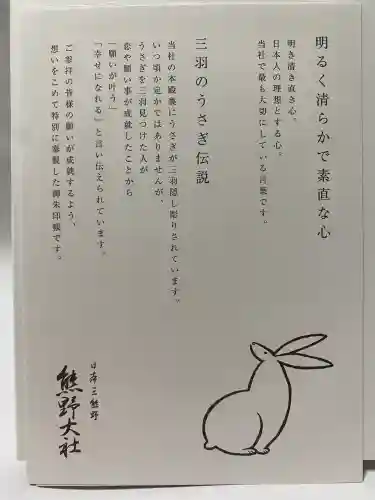 明るく清らかで素直な心
明き清き直き心。
日本人の理想とする心。
当社で最も大切にしている言葉です。
三羽のうさぎ伝説
当社の本殿裏にうさぎが三羽隠し彫りされています。
いつ頃か定かではありませんが、
うさぎを三羽見つけた人が
恋や願い事が成就したことから
「願いが叶う」
「幸せになれる」と言い伝えられています。
ご参拝の皆様の願いが成就するよう、
想いをこめて特別に奉製した御朱印帳です。
日本三熊野
熊野大社